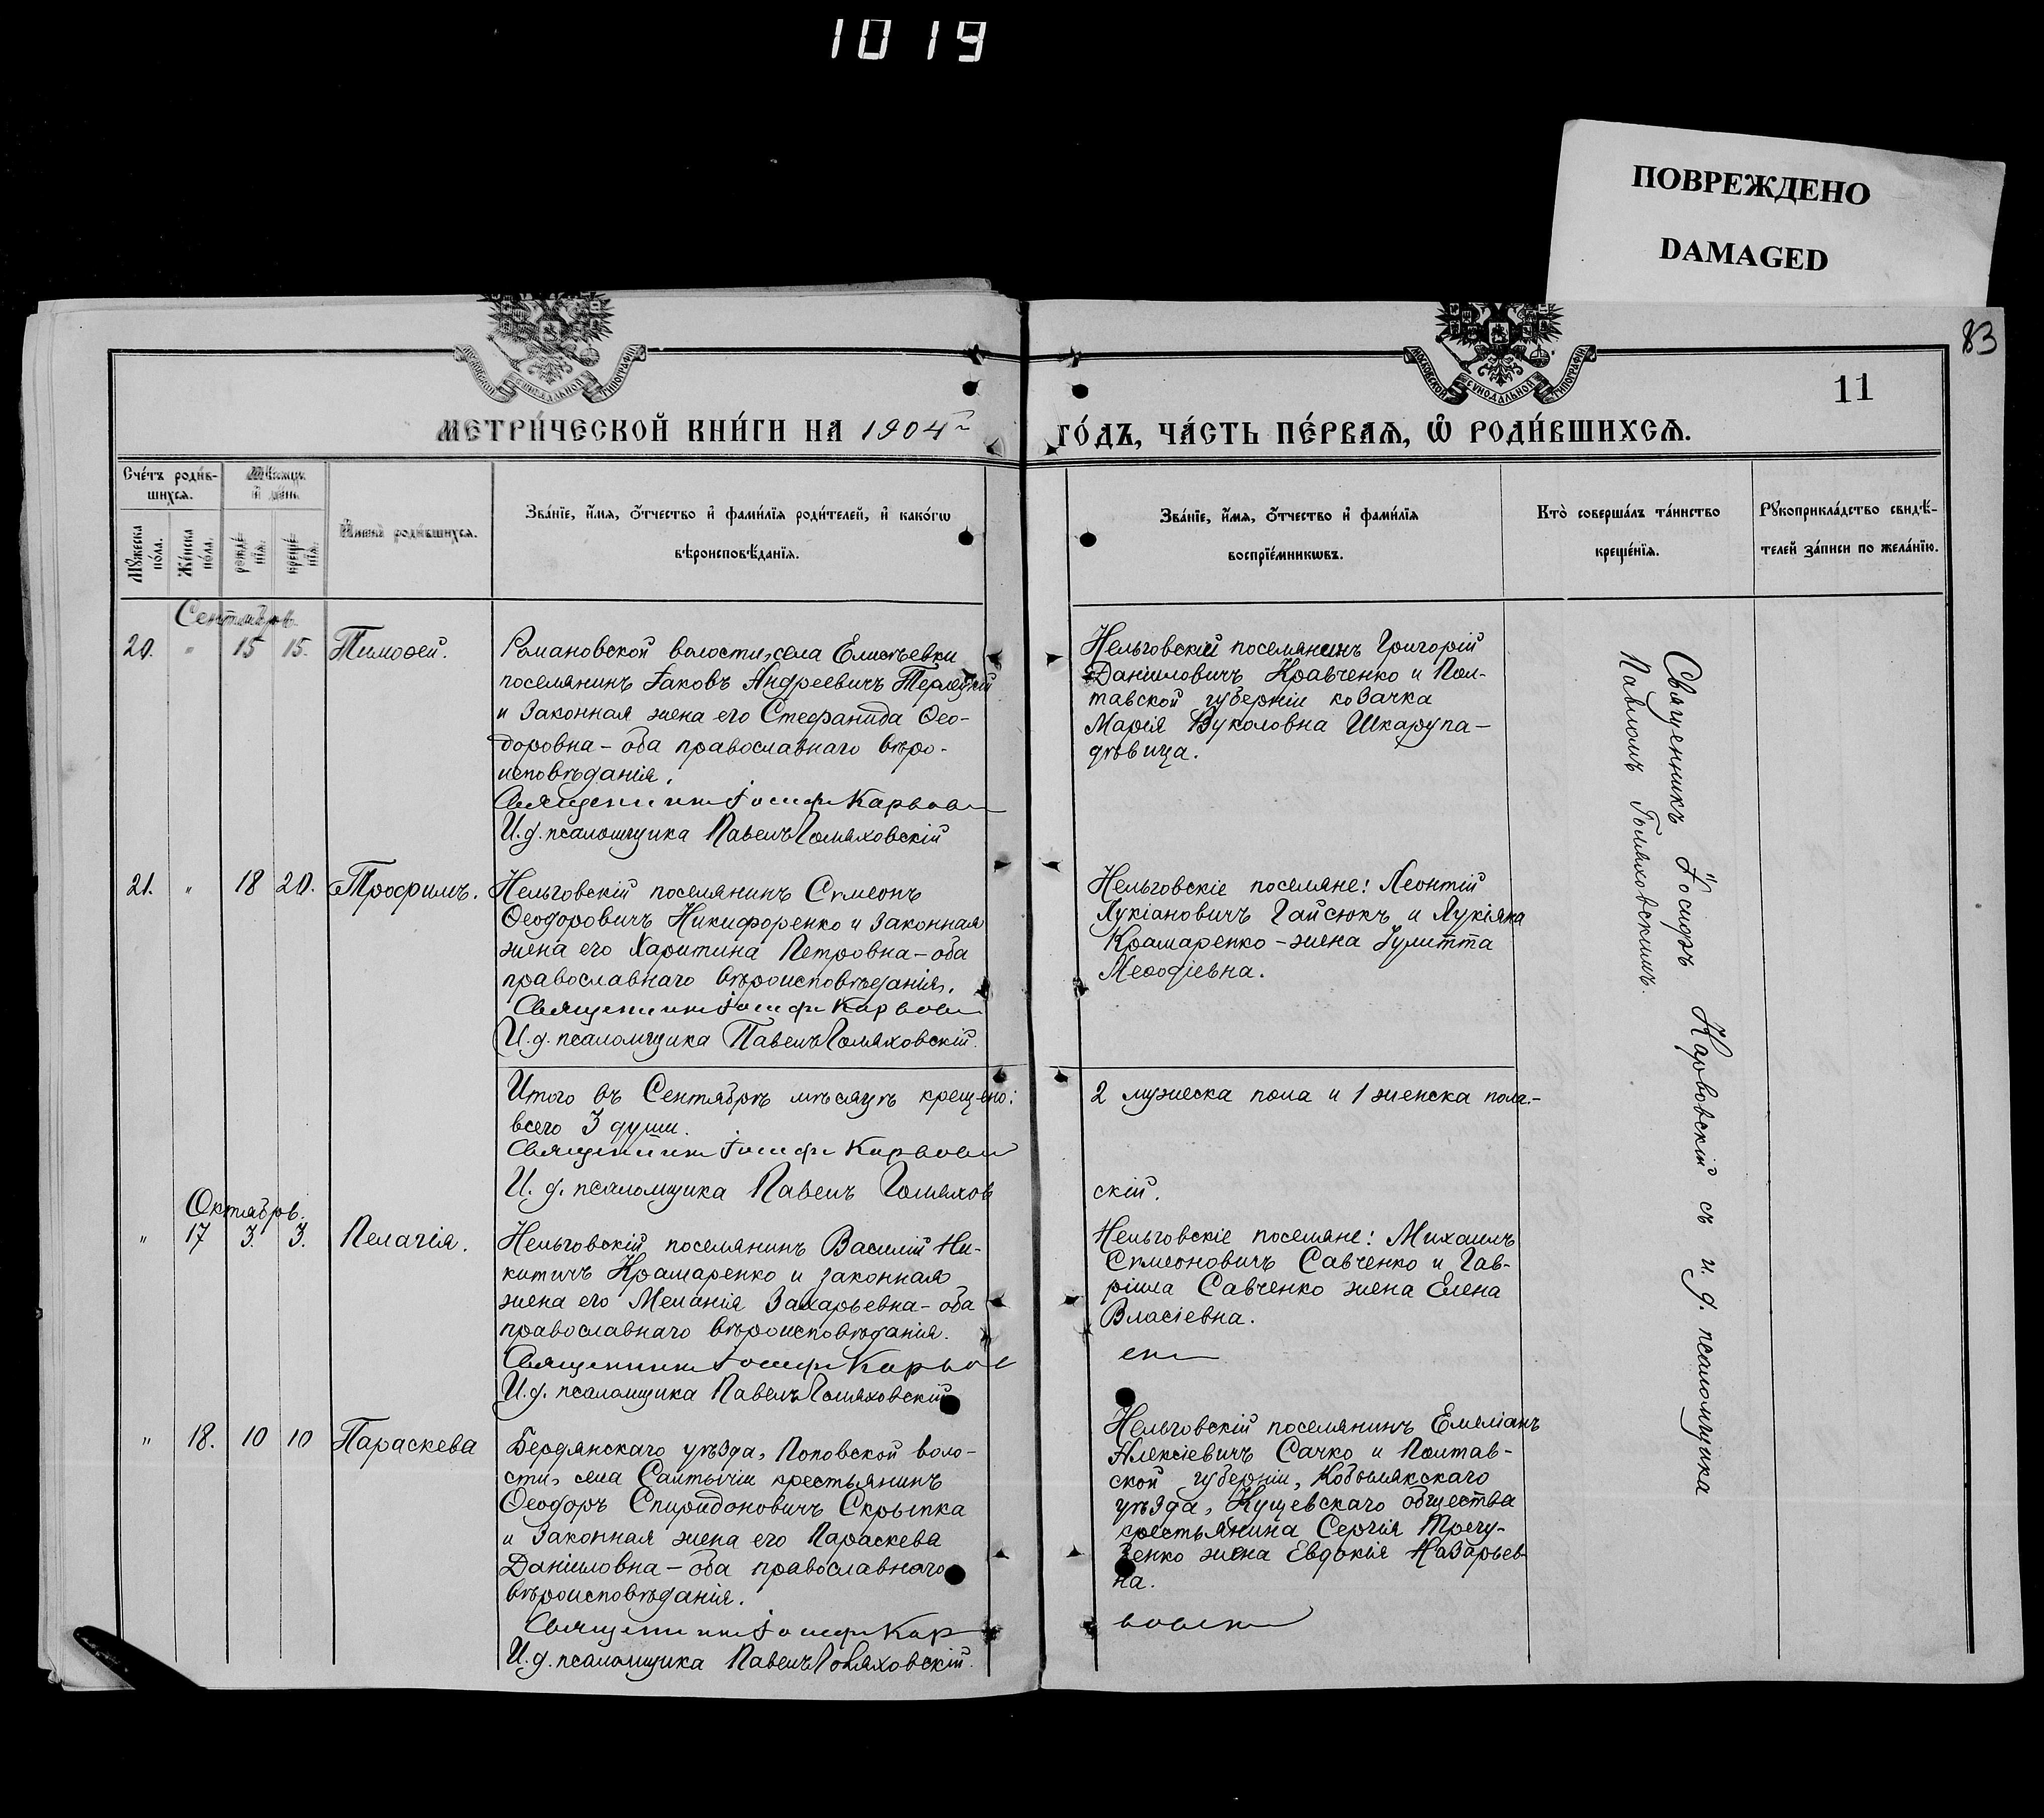 1019
ПОВРЕЖДЕНО
DAMAGED
83
11
МОСКОВСКОЙ СѴНОДАЛЬНОЙ ТИПОГРАФІИ
МЕТРИ́ЧЕСКОЙ КНИ́ГИ НА 1904 ГО́ДЪ, ЧА́СТЬ ПЕ́РВАѦ, Ѡ РОДИ́ВШИХСѦ.
Сче́тъ роди́в-
шихсѧ.
Мѣ́сѧцъ
и де́нь
Мꙋ́жеска по́ла.
Же́нска по́ла.
рожде́-
нїѧ.
креще́-
нїѧ.
И҆мена̀ роди́вшихсѧ.
Зва́нїе, и҆́мѧ, ѻ҆́тчество и҆ фами́лїѧ роди́телей, и҆ како́гѡ
вѣроисповѣ́данїѧ.
Зва́нїе, и҆́мѧ, ѻ҆́тчество и҆ фами́лїѧ
воспрїе́мникѡвъ.
Кто̀ соверша́лъ та́инство
креще́нїѧ.
Рꙋкоприкла́дство свидѣ́-
телей за́писи по жела́нїю.
Сентябрь.
20. " 15 15. Тимофей.
Романовской волости, села Елисѣевки
поселянинъ Іаковъ Андреевичъ Терлецкій
и законная жена его Стефанида Ѳео-
доровна – оба православнаго вѣро-
исповѣданія.
Священникъ Іосифъ Карвовск
И. д. псаломщика Павелъ Голяховскій
Нельговскій поселянинъ Григорій
Даниловичъ Кравченко и Пол-
тавской губерніи козачка
Марія Вуколовна Шкарупа –
дѣвица.
21. " 18 20. Трофимъ.
Нельговскій поселянинъ Сѵмеонъ
Ѳеодоровичъ Никифоренко и законная
жена его Харитина Петровна – оба
православнаго вѣроисповѣданія.
Священникъ Іосифъ Карвовск
И. д. псаломщика Павелъ Голяховскій.
Нельговскіе поселяне: Леонтій
Лукіановичъ Гайсюкъ и Лукіяна
Крамаренко – жена Іулитта
Меѳодіевна.
Итого въ Сентябрѣ мѣсяцѣ крещено: 2 мужеска пола и 1 женска пола. –
всего 3 души.
Священникъ Іосифъ Карвовск
И. д. псаломщика Павелъ Голяховскій.
Октябрь.
" 17 3. 3. Пелагія.
Нельговскій поселянинъ Василій Ни-
китичъ Крамаренко и законная
жена его Меланія Захарьевна – оба
православнаго вѣроисповѣданія.
Священникъ Іосифъ Карвов
И. д. псаломщика Павелъ Голяховскій
Нельговскіе поселяне: Михаилъ
Сѵмеоновичъ Савченко и Гав-
ріила Савченко жена Елена
Власіевна.
" 18. 10 10 Параскева
Бердянскаго уѣзда, Поповской воло-
сти, села Салтычіи крестьянинъ
Ѳеодоръ Спиридоновичъ Скрыпка
и законная жена его Параскева
Даніиловна – оба православнаго
вѣроисповѣданія.
Священникъ Іосифъ Кар
И. д. псаломщика Павелъ Голяховскій.
Нельговскій поселянинъ Емеліанъ
Алексіевичъ Сачко и Полтав-
ской губерніи, Кобылякскаго
уѣзда, Кущевскаго общества
крестьянина Сергія Трегу-
бенко жена Евдокія Назарьев-
на.
Священникъ Іосифъ Карвовскій съ и. д. псаломщика
Павломъ Голяховскимъ.